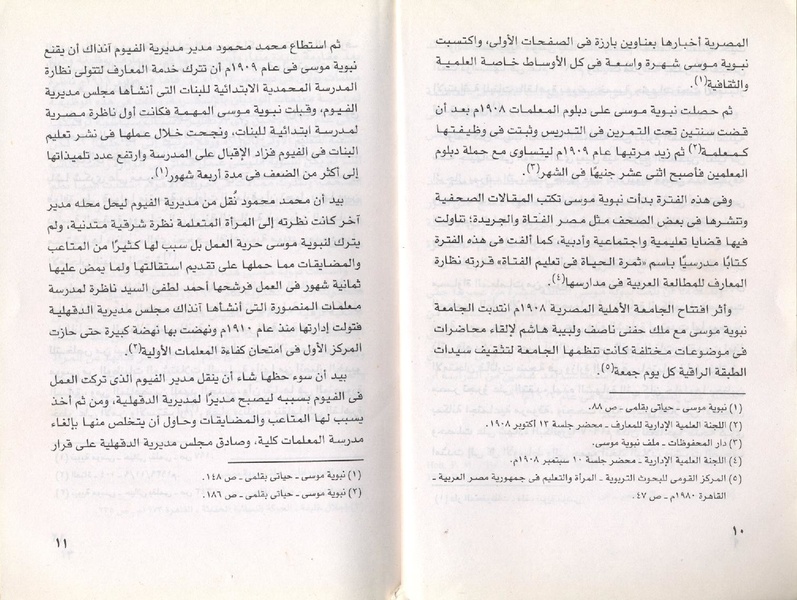 المصرية أخبارها بعناوين بارزة فى الصفحات الأولى، واكتسبت
نبوية موسى شهرة واسعة فى كل الأوساط خاصة العلمية
والثقافية(١).
ثم حصلت نبوية موسى على دبلوم المعلمات ١٩٠٨م بعد أن
قضت سنتين تحت التمرين فى التدريس وثبتت فى وظيفتها
كمعلمة(٢) ثم زيد مرتبها عام ١٩٠٩م ليتساوى مع حملة دبلوم
المعلمين فأصبح اثنى عشر جنيهًا فى الشهر(٣).
وفى هذه الفترة بدأت نبوية موسى تكتب المقالات الصحفية
وتنشرها فى بعض الصحف مثل مصر الفتاة والجريدة؛ تناولت
فيها قضايا تعليمية واجتماعية وأدبية، كما ألفت فى هذه الفترة
كتابًا مدرسيًا باسم «ثمرة الحياة فى تعليم الفتاة» قررته نظارة
المعارف للمطالعة العربية فى مدارسها(٤).
وأثر افتتاح الجامعة الأهلية المصرية ١٩٠٨م انتدبت الجامعة
نبوية موسى مع ملك حفنى ناصف ولبيبة هاشم لإلقاء محاضرات
فى موضوعات مختلفة كانت تنظمها الجامعة لتثقيف سيدات
الطبقة الراقية كل يوم جمعة(٥).
(١) نبوية موسى ـ حياتى بقلمى ـ ص ٨٨.
(٢) اللجنة العلمية الإدارية للمعارف ـ محضر جلسة ١٢ أكتوبر ١٩٠٨.
(٣) دار المحفوظات ـ ملف نبوية موسى.
(٤) اللجنة العلمية الإدارية ـ محضر جلسة ١٠ سبتمبر ١٩٠٨م.
(٥) المركز القومى للبحوث التربوية ـ المرأة والتعليم فى جمهورية مصر العربية ـ
القاهرة ١٩٨٠م ـ ص ٤٧.
١٠
ثم استطاع محمد محمود مدير مديرية الفيوم آنذاك أن يقنع
نبوية موسى فى عام ١٩٠٩م أن تترك خدمة المعارف لتتولى نظارة
المدرسة المحمدية الابتدائية للبنات التى أنشأها مجلس مديرية
الفيوم، وقبلت نبوية موسى المهمة فكانت أول ناظرة مصرية
لمدرسة ابتدائية للبنات، ونجحت خلال عملها فى نشر تعليم
البنات فى الفيوم فزاد الإقبال على المدرسة وارتفع عدد تلميذاتها
إلى أكثر من الضعف فى مدة أربعة شهور(١).
بيد أن محمد محمود نُقل من مديرية الفيوم ليحل محله مدير
آخر كانت نظرته إلى المرأة المتعلمة نظرة شرقية متدنية، ولم
يترك لنبوية موسى حرية العمل بل سبب لها كثيرًا من المتاعب
والمضايقات مما حملها على تقديم استقالتها ولما يمض عليها
ثمانية شهور فى العمل فرشحها أحمد لطفى السيد ناظرة لمدرسة
معلمات المنصورة التى أنشأها آنذاك مجلس مديرية الدقهلية
فتولت إدارتها منذ عام ١٩١٠م ونهضت بها نهضة كبيرة حتى حازت
المركز الأول فى امتحان كفاءة المعلمات الأولية(٢).
بيد أن سوء حظها شاء أن ينقل مدير الفيوم الذى تركت العمل
فى الفيوم بسببه ليصبح مديرًا لمديرية الدقهلية، ومن ثم أخذ
يسبب لها المتاعب والمضايقات وحاول أن يتخلص منها بإلغاء
مدرسة المعلمات كلية، وصادق مجلس مديرية الدقهلية على قرار
(١) نبوية موسى ـ حياتى بقلمى ـ ص ١٤٨.
(٢) نبوية موسى ـ حياتى بقلمى ـ ص ١٨٦.
١١